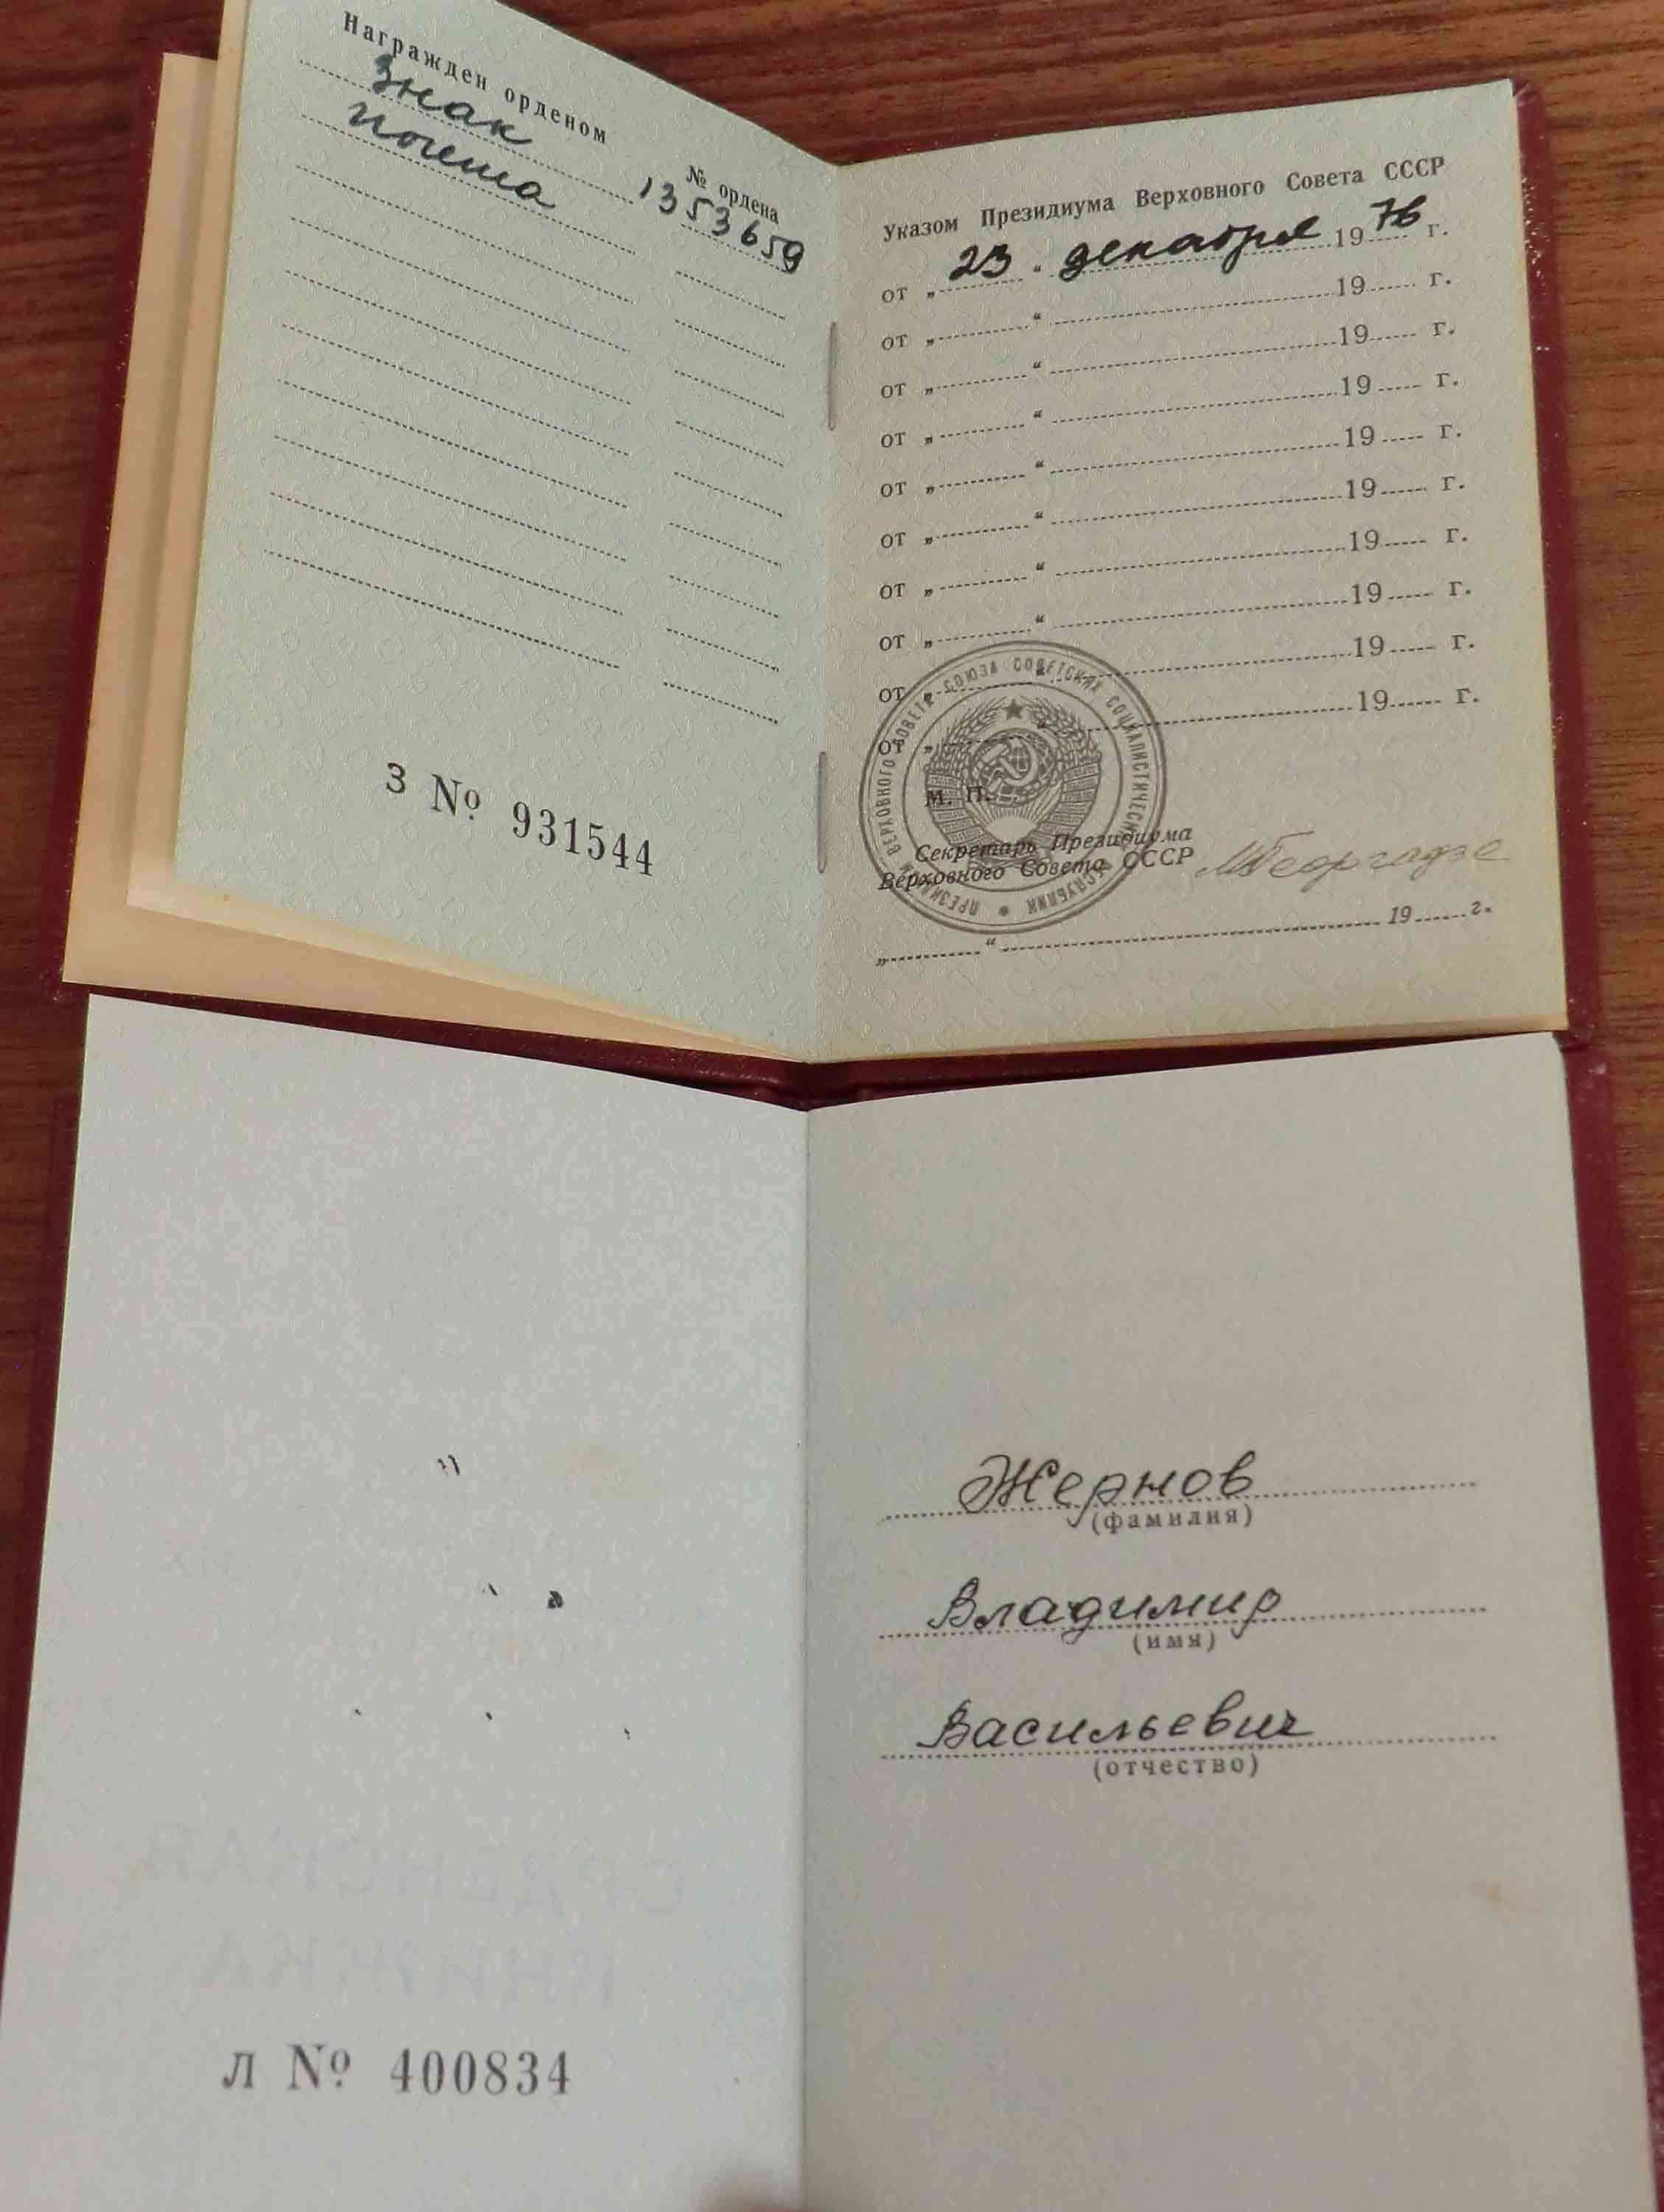 Награжден орденом
№ ордена
Знак 1353659
почета
З № 931544
Указом Президиума Верховного Совета СССР
от „ 23 “ декабря 1976 г.
от „ “ 19 г.
от „ “ 19 г.
от „ “ 19 г.
от „ “ 19 г.
от „ “ 19 г.
от „ “ 19 г.
от „ “ 19 г.
от „ “ 19 г.
от „ “ 19 г.
М. П.
ПРЕЗИДИУМ ВЕРХОВНОГО СОВЕТА СОЮЗА СОВЕТСКИХ СОЦИАЛИСТИЧЕСКИХ РЕСПУБЛИК
Секретарь Президиума
Верховного Совета СССР МГеоргадзе
„ “ 19 г.
Жернов
(фамилия)
Владимир
(имя)
Васильевич
(отчество)
ОРДЕНСКАЯ
КНИЖКА
Л № 400834